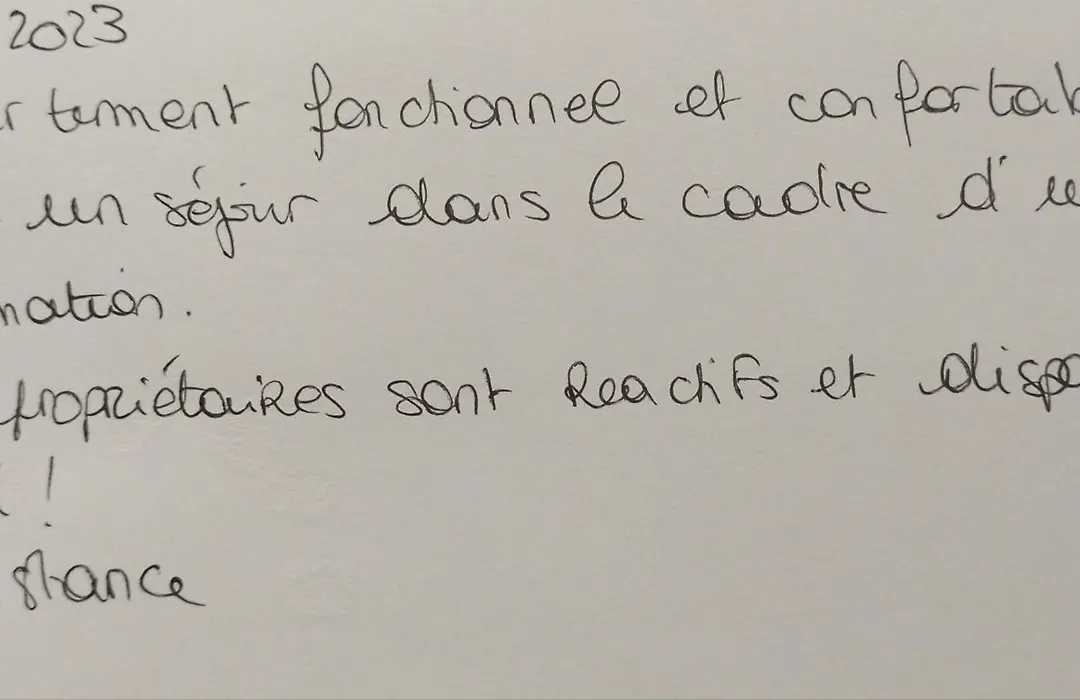 2023
rtement fonctionnel et confortab
un séjour dans le cadre d'u
mation.
propriétaires sont Reactifs et dispo
!
stance